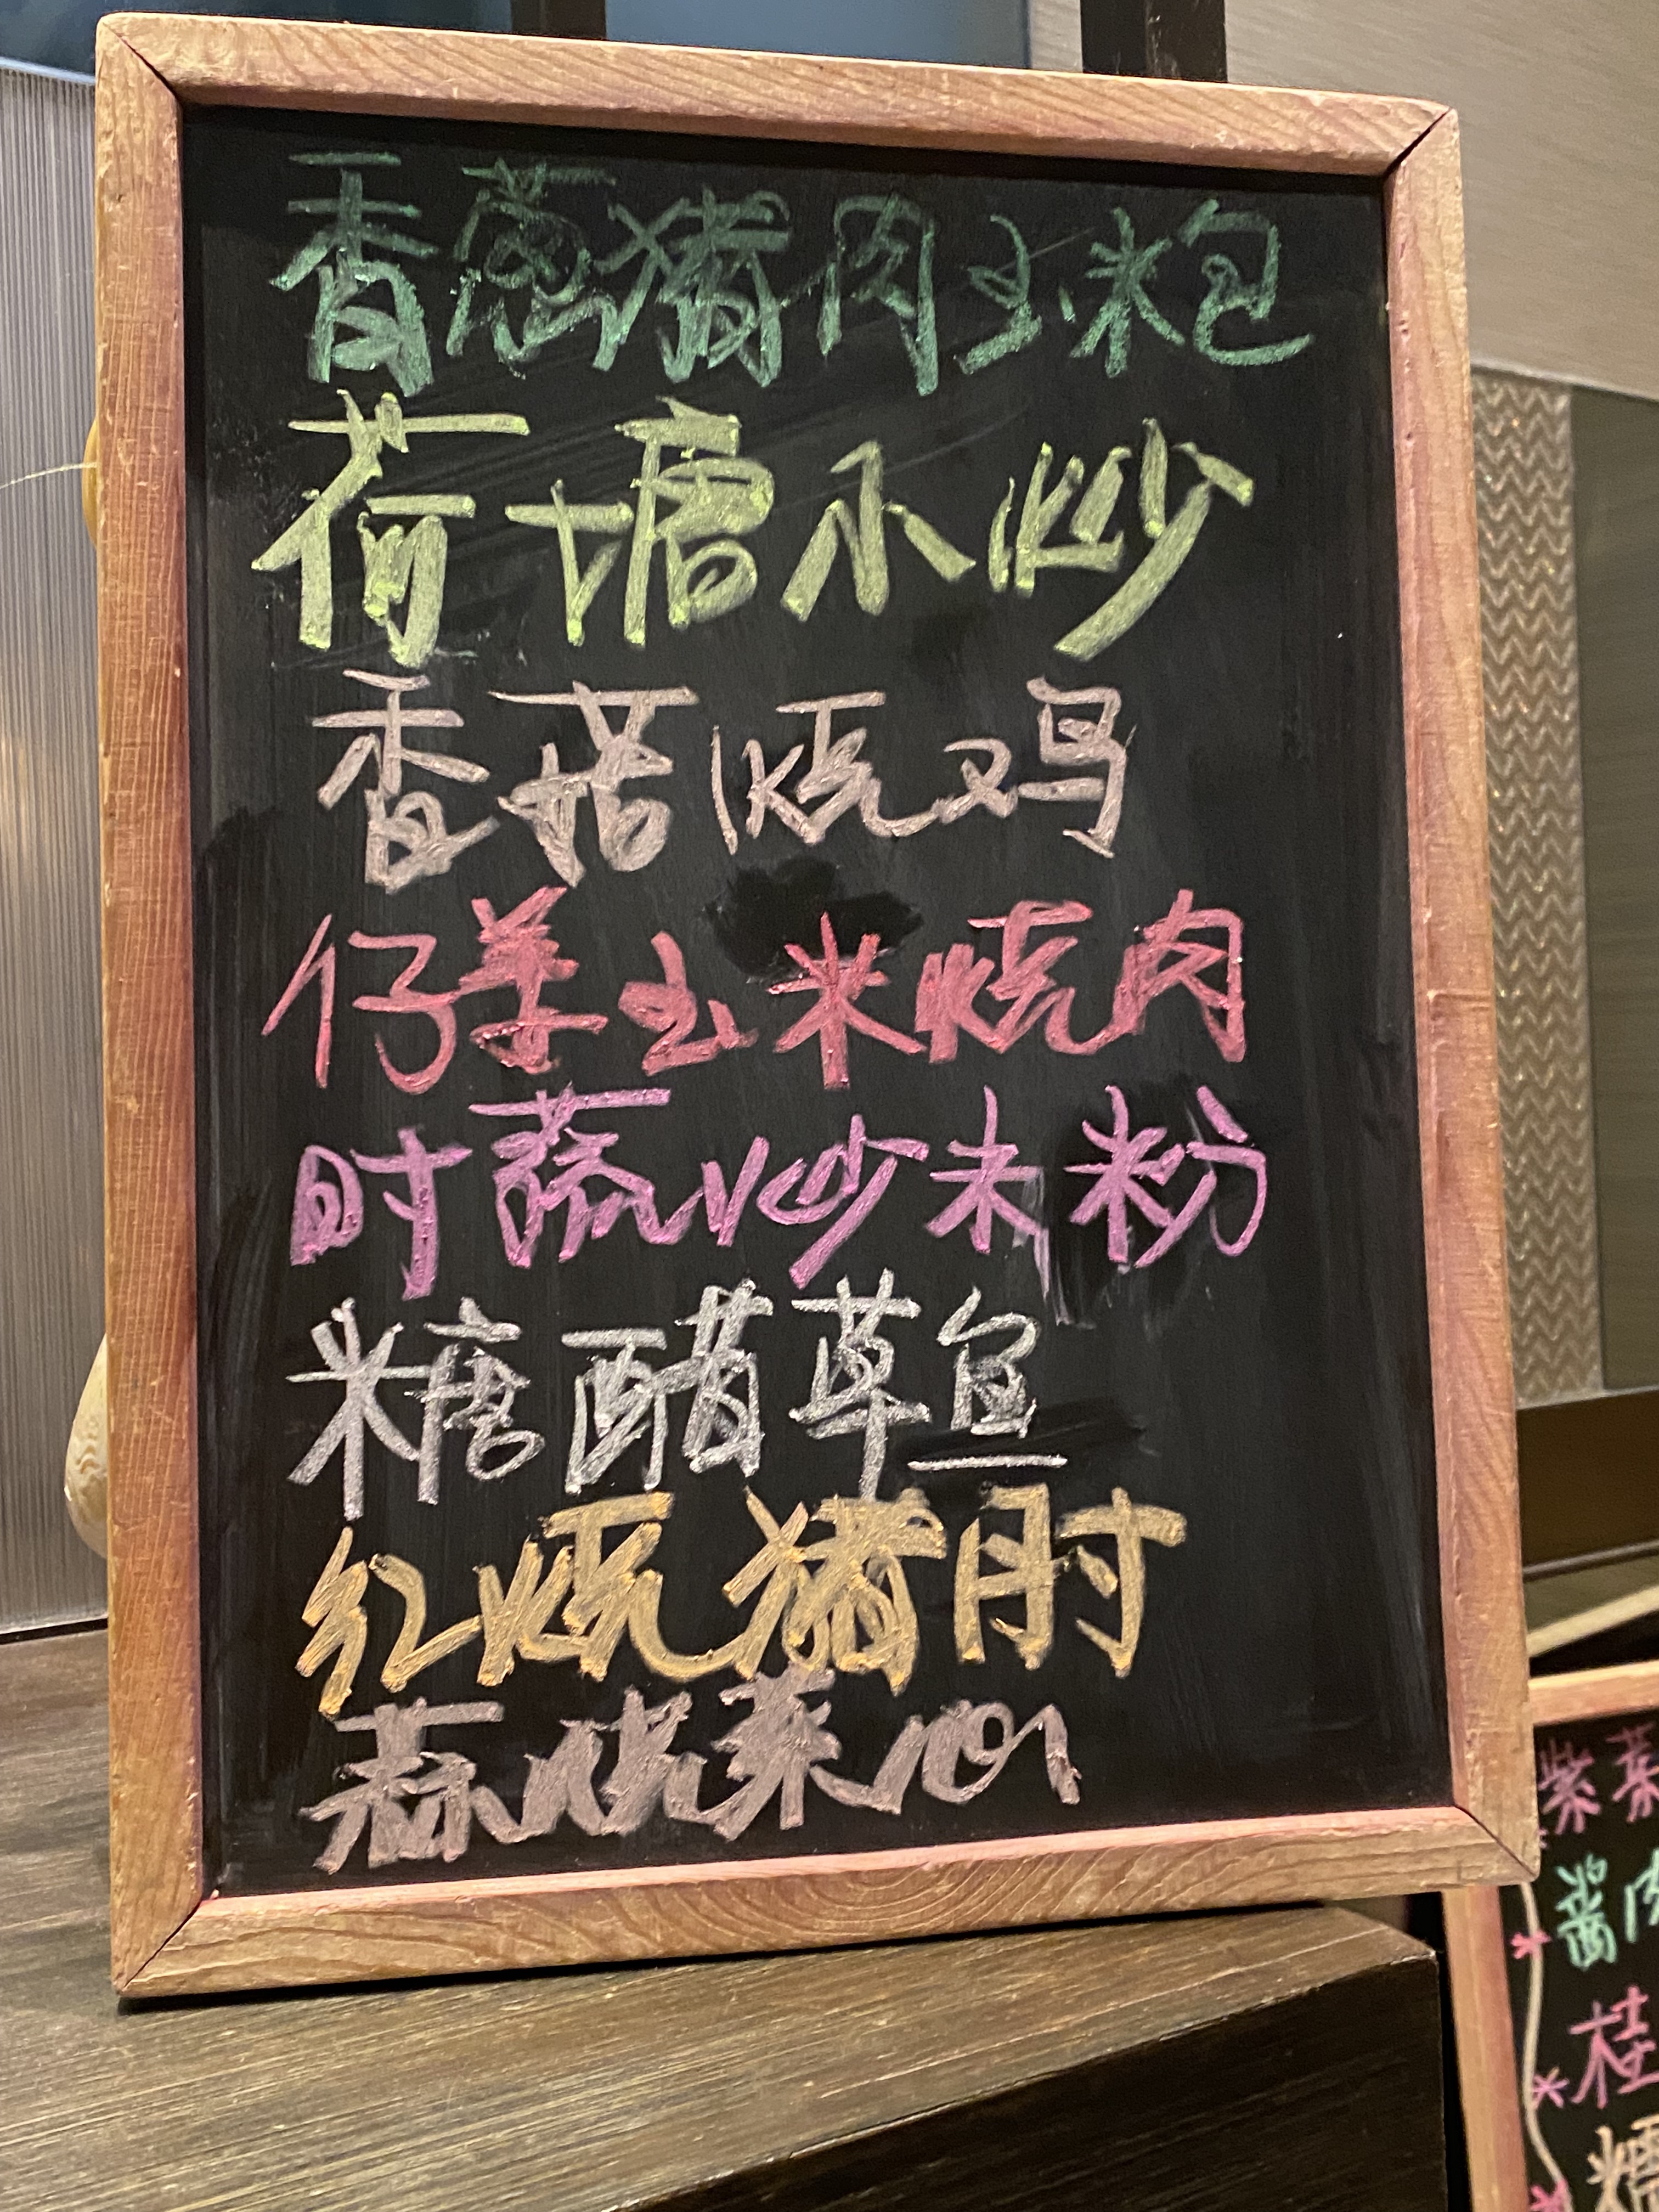 香葱猪肉玉米包
荷塘小炒
香菇烧鸡
仔姜玉米烧肉
时蔬炒米粉
糖醋草鱼
红烧猪肘
蒜炒菜心
紫菜
酱肉
桂
糯